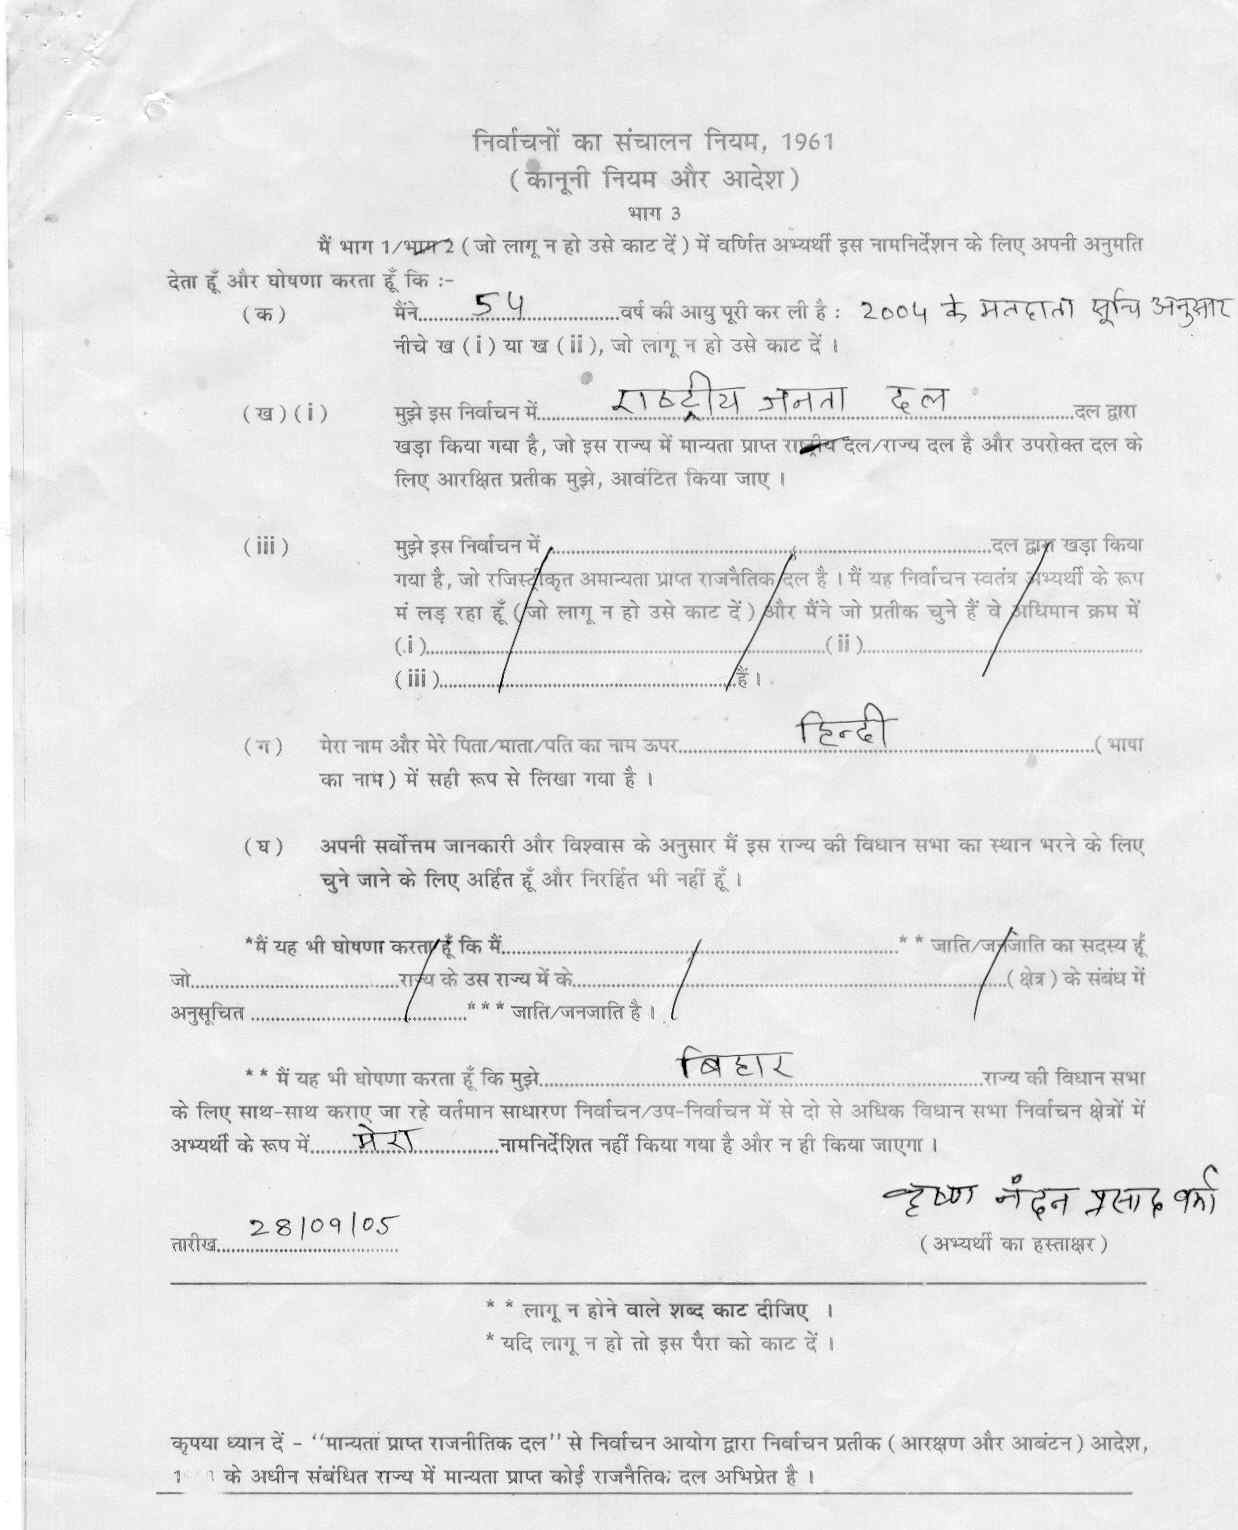 निर्वाचनों का संचालन नियम, 1961
(कानूनी नियम और आदेश)
भाग 3
मैं भाग 1/भाग 2 (जो लागू न हो उसे काट दें) में वर्णित अभ्यर्थी इस नामनिर्देशन के लिए अपनी अनुमति
देता हूँ और घोषणा करता हूँ कि :-
(क) मैंने 54 वर्ष की आयु पूरी कर ली है : 2004 के मतदाता सूचि अनुसार
नीचे ख (i) या ख (ii), जो लागू न हो उसे काट दें ।
(ख) (i) मुझे इस निर्वाचन में राष्ट्रीय जनता दल दल द्वारा
खड़ा किया गया है, जो इस राज्य में मान्यता प्राप्त राष्ट्रीय दल/राज्य दल है और उपरोक्त दल के
लिए आरक्षित प्रतीक मुझे, आवंटित किया जाए ।
(iii) मुझे इस निर्वाचन में दल द्वारा खड़ा किया
गया है, जो रजिस्ट्रीकृत अमान्यता प्राप्त राजनैतिक दल है । मैं यह निर्वाचन स्वतंत्र अभ्यर्थी के रूप
मं लड़ रहा हूँ (जो लागू न हो उसे काट दें) और मैंने जो प्रतीक चुने हैं वे अधिमान क्रम में
(.i) (ii)
(iii) हैं ।
(ग) मेरा नाम और मेरे पिता/माता/पति का नाम ऊपर हिन्दी (भाषा
का नाम) में सही रूप से लिखा गया है ।
(घ) अपनी सर्वोत्तम जानकारी और विश्वास के अनुसार मैं इस राज्य की विधान सभा का स्थान भरने के लिए
चुने जाने के लिए अर्हित हूँ और निरर्हित भी नहीं हूँ ।
*मैं यह भी घोषणा करता हूँ कि मैं ** जाति/जनजाति का सदस्य हूँ
जो राज्य के उस राज्य में के (क्षेत्र) के संबंध में
अनुसूचित *** जाति/जनजाति है ।
** मैं यह भी घोषणा करता हूँ कि मुझे बिहार राज्य की विधान सभा
के लिए साथ-साथ कराए जा रहे वर्तमान साधारण निर्वाचन/उप-निर्वाचन में से दो से अधिक विधान सभा निर्वाचन क्षेत्रों में
अभ्यर्थी के रूप में मेरा नामनिर्देशित नहीं किया गया है और न ही किया जाएगा ।
कृष्ण नंदन प्रसाद वर्मा
तारीख 28/09/05 (अभ्यर्थी का हस्ताक्षर)
** लागू न होने वाले शब्द काट दीजिए ।
* यदि लागू न हो तो इस पैरा को काट दें ।
कृपया ध्यान दें - "मान्यता प्राप्त राजनीतिक दल" से निर्वाचन आयोग द्वारा निर्वाचन प्रतीक (आरक्षण और आबंटन) आदेश,
के अधीन संबंधित राज्य में मान्यता प्राप्त कोई राजनैतिक दल अभिप्रेत है ।